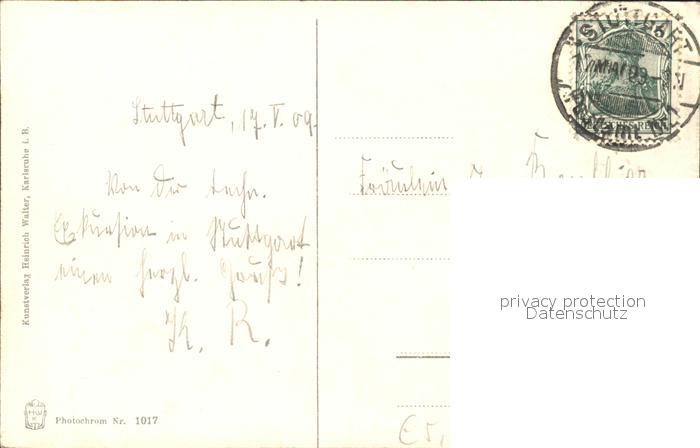 Stuttgart, 17. V. 09.
Von der techn.
Exkursion in Stuttgart
einen herzl. Gruß!
K. R.
Fräulein
STUTTGART
MAI 09
privacy protection
Datenschutz
Kunstverlag Heinrich Walter, Karlsruhe i. B.
Photochrom Nr. 1017